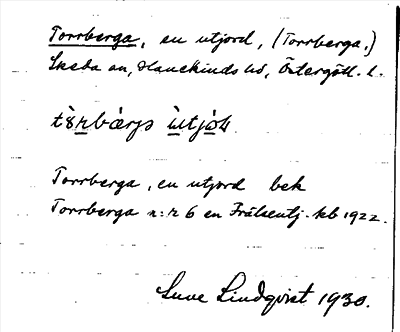 Torrberga, en utjord, (Torrberga,)
Skeda sn, Hanekinds hd, Östergötl. l.
Torrberga, en utjord bek
Torrberga n:r 6 en Frälseutj. kb 1922.
Sune Lindqvist 1930.